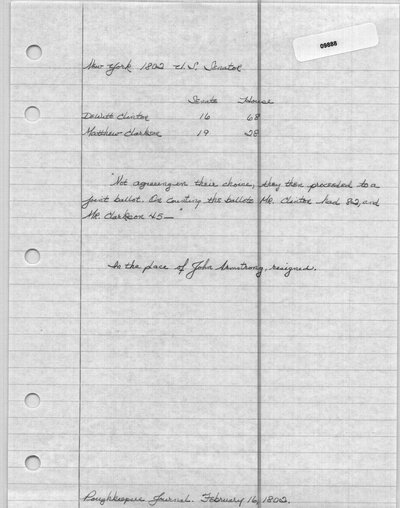 09888
New York 1802 U.S. Senator
Senate House
DeWitt Clinton 16 68
Matthew Clarkson 19 28
"Not agreeing in their choice, they then proceeded to a
joint ballot. On counting the ballots Mr. Clinton had 82, and
Mr. Clarkson 45—"
In the place of John Armstrong, resigned.
Poughkeepsie Journal. February 16, 1802.